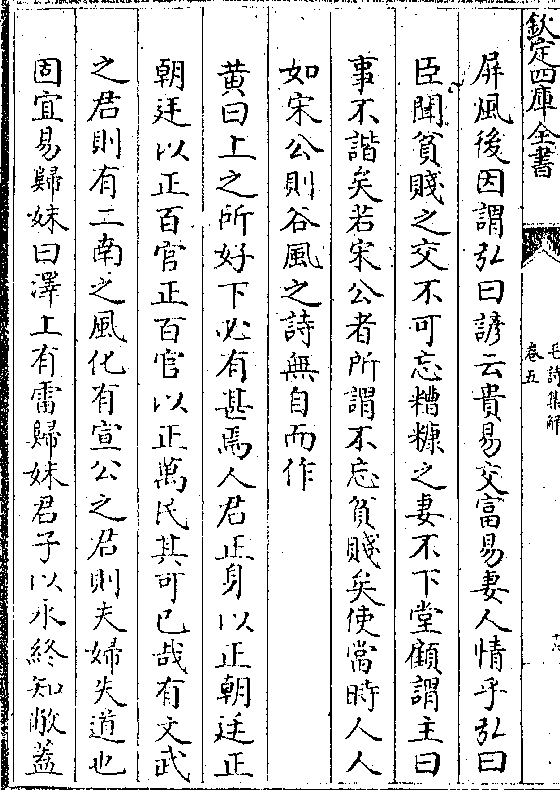 欽定四庫全書
毛詩集解
卷五
屏風後因謂弘曰諺云貴易交富易妻人情乎弘曰
臣聞貧賤之交不可忘糟糠之妻不下堂顧謂主曰
事不諧矣若宋公者所謂不忘貧賤矣使當時人人
如宋公則谷風之詩無自而作
黄曰上之所好下必有甚焉人君正身以正朝廷正
朝廷以正百官正百官以正萬民其可已哉有文武
之君則有二南之風化有宣公之君則夫婦失道也
固宜易歸妹曰澤上有雷歸妹君子以永終知敝蓋